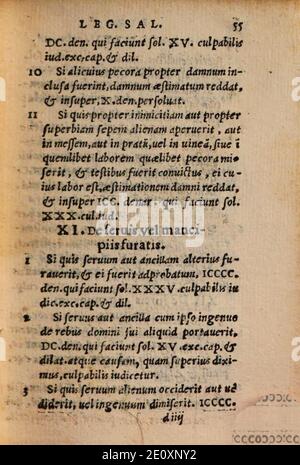 LEG. SAL. 55
DC. den. qui faciunt sol. XV. culpabilis
iud. exc. cap. & dil.
10 Si alicuius pecora propter damnum in-
clusa fuerint, damnum æstimatum reddat,
& insuper, X. den. persoluat.
11 Si quis propter inimicitiam aut propter
superbiam sepem alienam aperuerit, aut
in messem, aut in pratũ, uel in uineã, siue ĩ
quemlibet laborem quælibet pecora mi-
serit, & testibus fuerit conuictus, ei cu-
ius labor est, æstimationem damni reddat,
& insuper ICC. denar. qui faciunt sol.
XXX. cul. iud.
XI. De seruis vel manci-
piis furatis.
1 Si quis seruum aut ancillam alterius fu-
rauerit, & ei fuerit adprobatum, ICCCC.
den. qui faciunt sol. XXXV. culpabilis iu
dic. exc. cap. & dil.
2 Si seruus aut ancilla cum ipso ingenuo
de rebus domini sui aliquid portauerit,
DC. den. qui faciunt sol. XV. exc. cap. &
dilat. atque causam, quam superius dixi-
mus, culpabilis iudicetur.
3 Si quis seruum alienum occiderit aut uẽ
diderit, uel ingenuum dimiserit. ICCCC.
d iiij
alamy
Image ID: 2E0XNY2
www.alamy.com